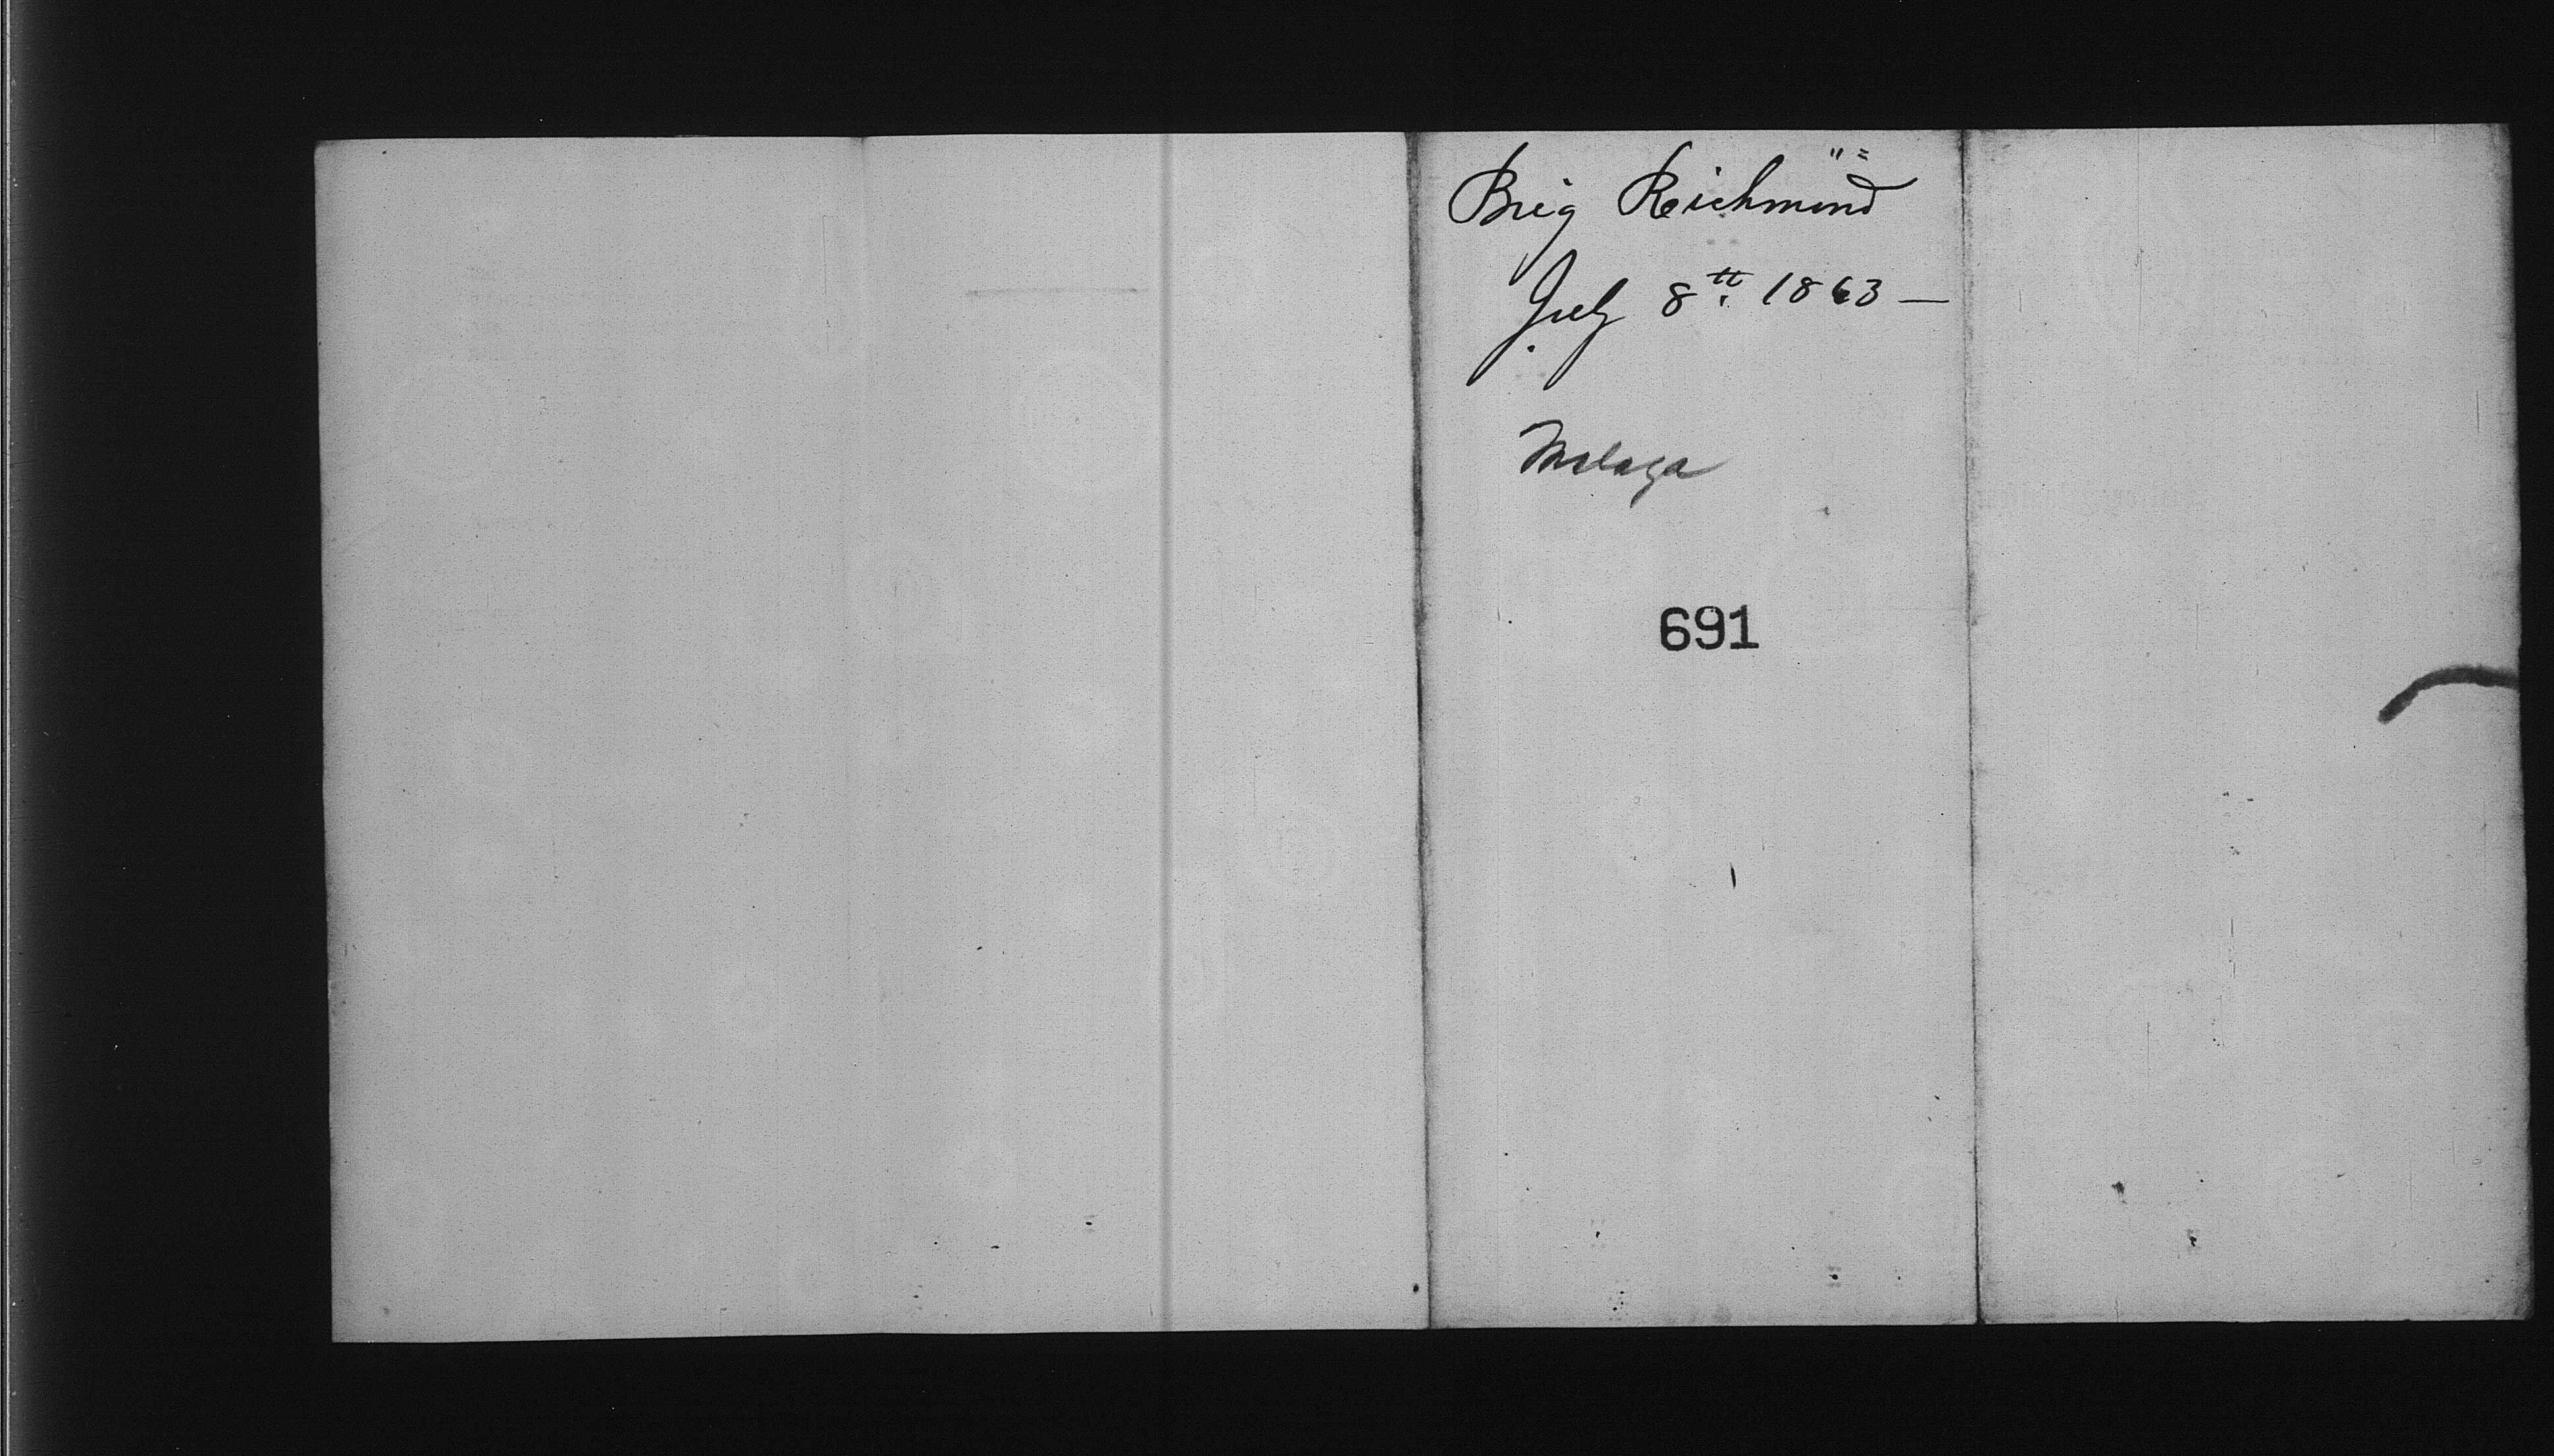 Brig Richmond
July 8th. 1863 —
Malaga
691